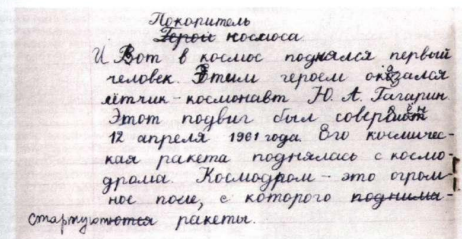 Покоритель
Герой космоса
И Вот в космос поднялся первый
человек. Этим героем оказался
лётчик-космонавт Ю. А. Гагарин
Этот подвиг был совершен
12 апреля 1961 года. Его космичес-
кая ракета поднялась с космо-
дрома. Космодром - это огром-
ное поле, с которого поднима-
стартуют ются ракеты.